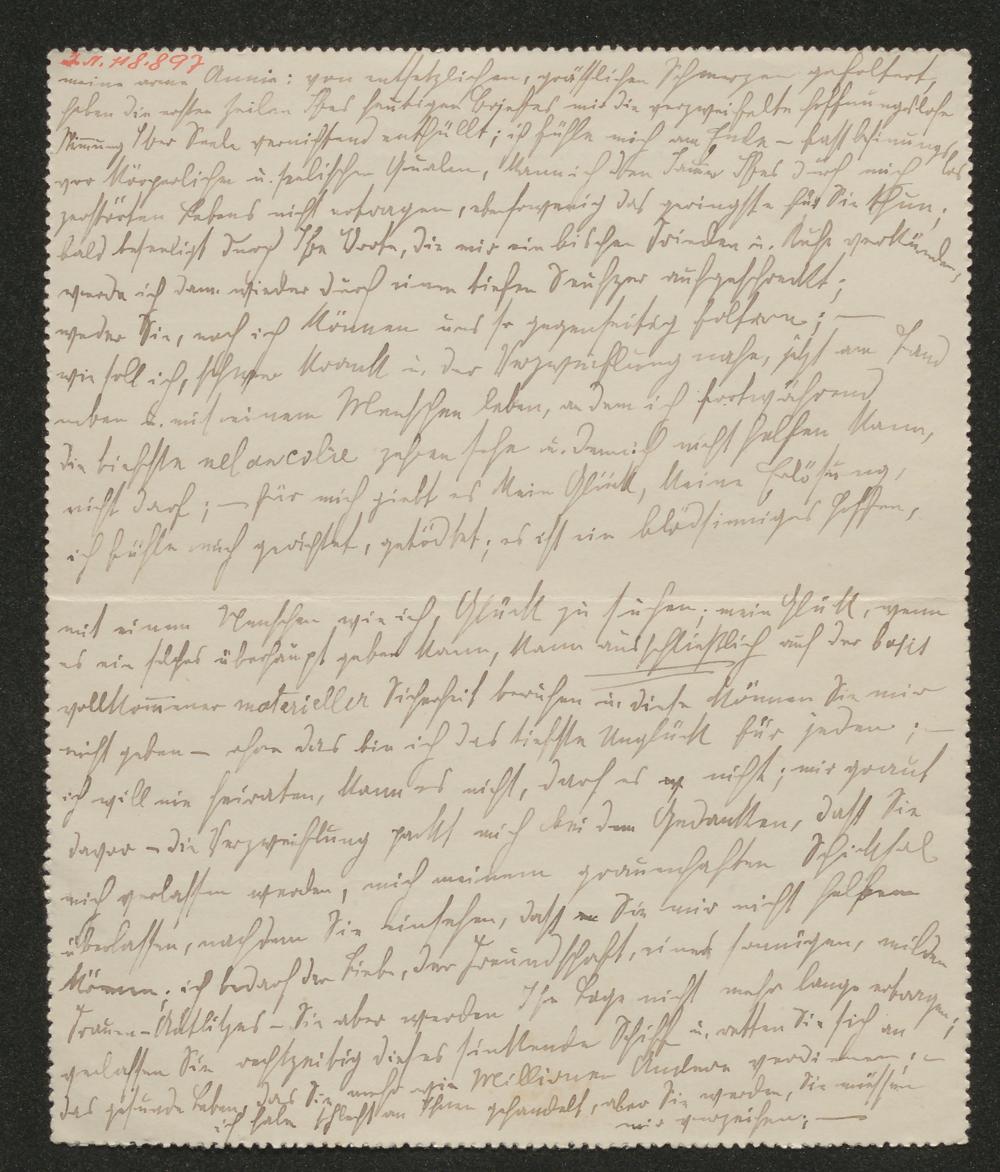 I.N. 118.897
meine arme Annie: von entsetzlichen, grässlichen Schmerzen gefoltert,
haben die ersten Zeilen Ihres heutigen Briefes mir die verzweifelte hoffnungslose
Stimmung Ihrer Seele vernichtend enthüllt; ich fühle mich am Ende – fast besinnungslos
vor körperlichen u. seelischen Qualen, kann ich den Jammer Ihres durch mich
zerstörten Lebens nicht ertragen, ebensowenig das geringste für Sie thun;
bald beseeligt durch Ihre Worte, die mir ein bischen Frieden u. Ruhe verkünden,
werde ich dann wieder durch einen tiefen Seufzer aufgeschreckt;
weder Sie, noch ich können uns so gegenseitig foltern; —
wie soll ich, schwer krank u. der Verzweiflung nahe, jetzt am Land
neben u. mit einem Menschen leben, an dem ich fortwährend
die tiefste melancolie zehren sehe u. dem ich nicht helfen kann,
nicht darf; — für mich giebt es kein Glück, keine Erlösung,
ich fühle mich gerichtet, getödtet; es ist ein blödsinniges Hoffen,
mit einem Menschen wie ich, Glück zu suchen; mein Glück, wenn
es ein solches überhaupt geben kann, kann ausschließlich auf der basis
vollkommener materieller Sicherheit beruhen u. diese können Sie mir
nicht geben – ohne das bin ich das tiefste Unglück für jeden; —
ich will nie heiraten, kann es nicht, darf es nicht; mir graut
davor – die Verzweiflung packt mich bei dem Gedanken, dass Sie
mich verlassen werden, mich meinem grauenhaften Schicksal
überlassen, nachdem Sie einsehen, dass Sie mir nicht helfen
können; ich bedarf der Liebe, der Freundschaft, eines sonnigen, milden
Frauen-Antlitzes – Sie aber werden Ihre Lage nicht mehr lange ertragen;
verlassen Sie rechtzeitig dieses sinkende Schiff u. retten Sie sich an
das gesunde Leben, das Sie mehr wie Millionen Andere verdienen; —
ich habe schlecht an Ihnen gehandelt, aber Sie werden, Sie müssen
mir verzeihen; —